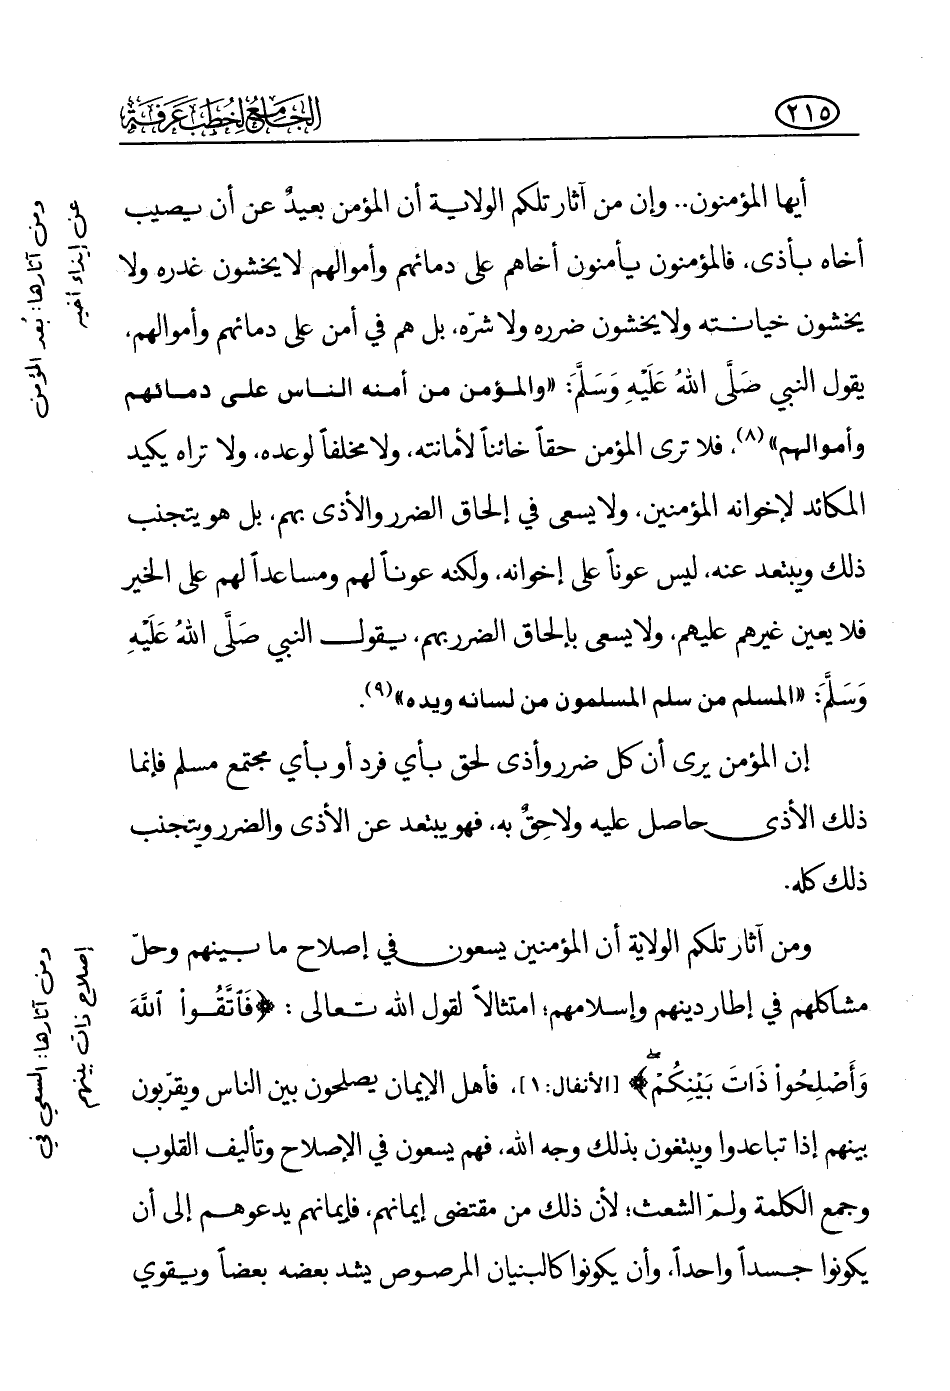 ٢١٥
الجامع لخطب عرفة
أيها المؤمنون.. وإن من آثار تلكم الولاية أن المؤمن بعيدٌ عن أن يصيب
أخاه بأذى، فالمؤمنون يأمنون أخاهم على دمائهم وأموالهم لا يخشون غدره ولا
يخشون خيانته ولا يخشون ضرره ولا شرّه، بل هم في أمن على دمائهم وأموالهم،
يقول النبي صَلَّى اللهُ عَلَيْهِ وَسَلَّمَ: «والمؤمن من أمنه الناس على دمائهم
وأموالهم»(٨)، فلا ترى المؤمن حقاً خائناً لأمانته، ولا مخلفاً لوعده، ولا تراه يكيد
المكائد لإخوانه المؤمنين، ولا يسعى في إلحاق الضرر والأذى بهم، بل هو يتجنب
ذلك ويبتعد عنه، ليس عوناً على إخوانه، ولكنه عوناً لهم ومساعداً لهم على الخير
فلا يعين غيرهم عليهم، ولا يسعى بإلحاق الضرر بهم، يقول النبي صَلَّى اللهُ عَلَيْهِ
وَسَلَّمَ: «المسلم من سلم المسلمون من لسانه ويده»(٩).
إن المؤمن يرى أن كل ضرر وأذى لحق بأي فرد أو بأي مجتمع مسلم فإنما
ذلك الأذى حاصل عليه ولاحِقٌ به، فهو يبتعد عن الأذى والضرر ويتجنب
ذلك كله.
ومن آثار تلكم الولاية أن المؤمنين يسعون في إصلاح ما بينهم وحلّ
مشاكلهم في إطار دينهم وإسلامهم؛ امتثالاً لقول الله تعالى: ﴿فَٱتَّقُواْ ٱللَّهَ
وَأَصْلِحُواْ ذَاتَ بَيْنِكُمْۖ﴾ [الأنفال:١]، فأهل الإيمان يصلحون بين الناس ويقرّبون
بينهم إذا تباعدوا ويبتغون بذلك وجه الله، فهم يسعون في الإصلاح وتأليف القلوب
وجمع الكلمة ولمّ الشعث؛ لأن ذلك من مقتضى إيمانهم، فإيمانهم يدعوهم إلى أن
يكونوا جسداً واحداً، وأن يكونوا كالبنيان المرصوص يشد بعضه بعضاً ويقوي
ومن آثارها: بُعد المؤمن
عن إيذاء أخيه
ومن آثارها: السعي في
إصلاح ذات بينهم